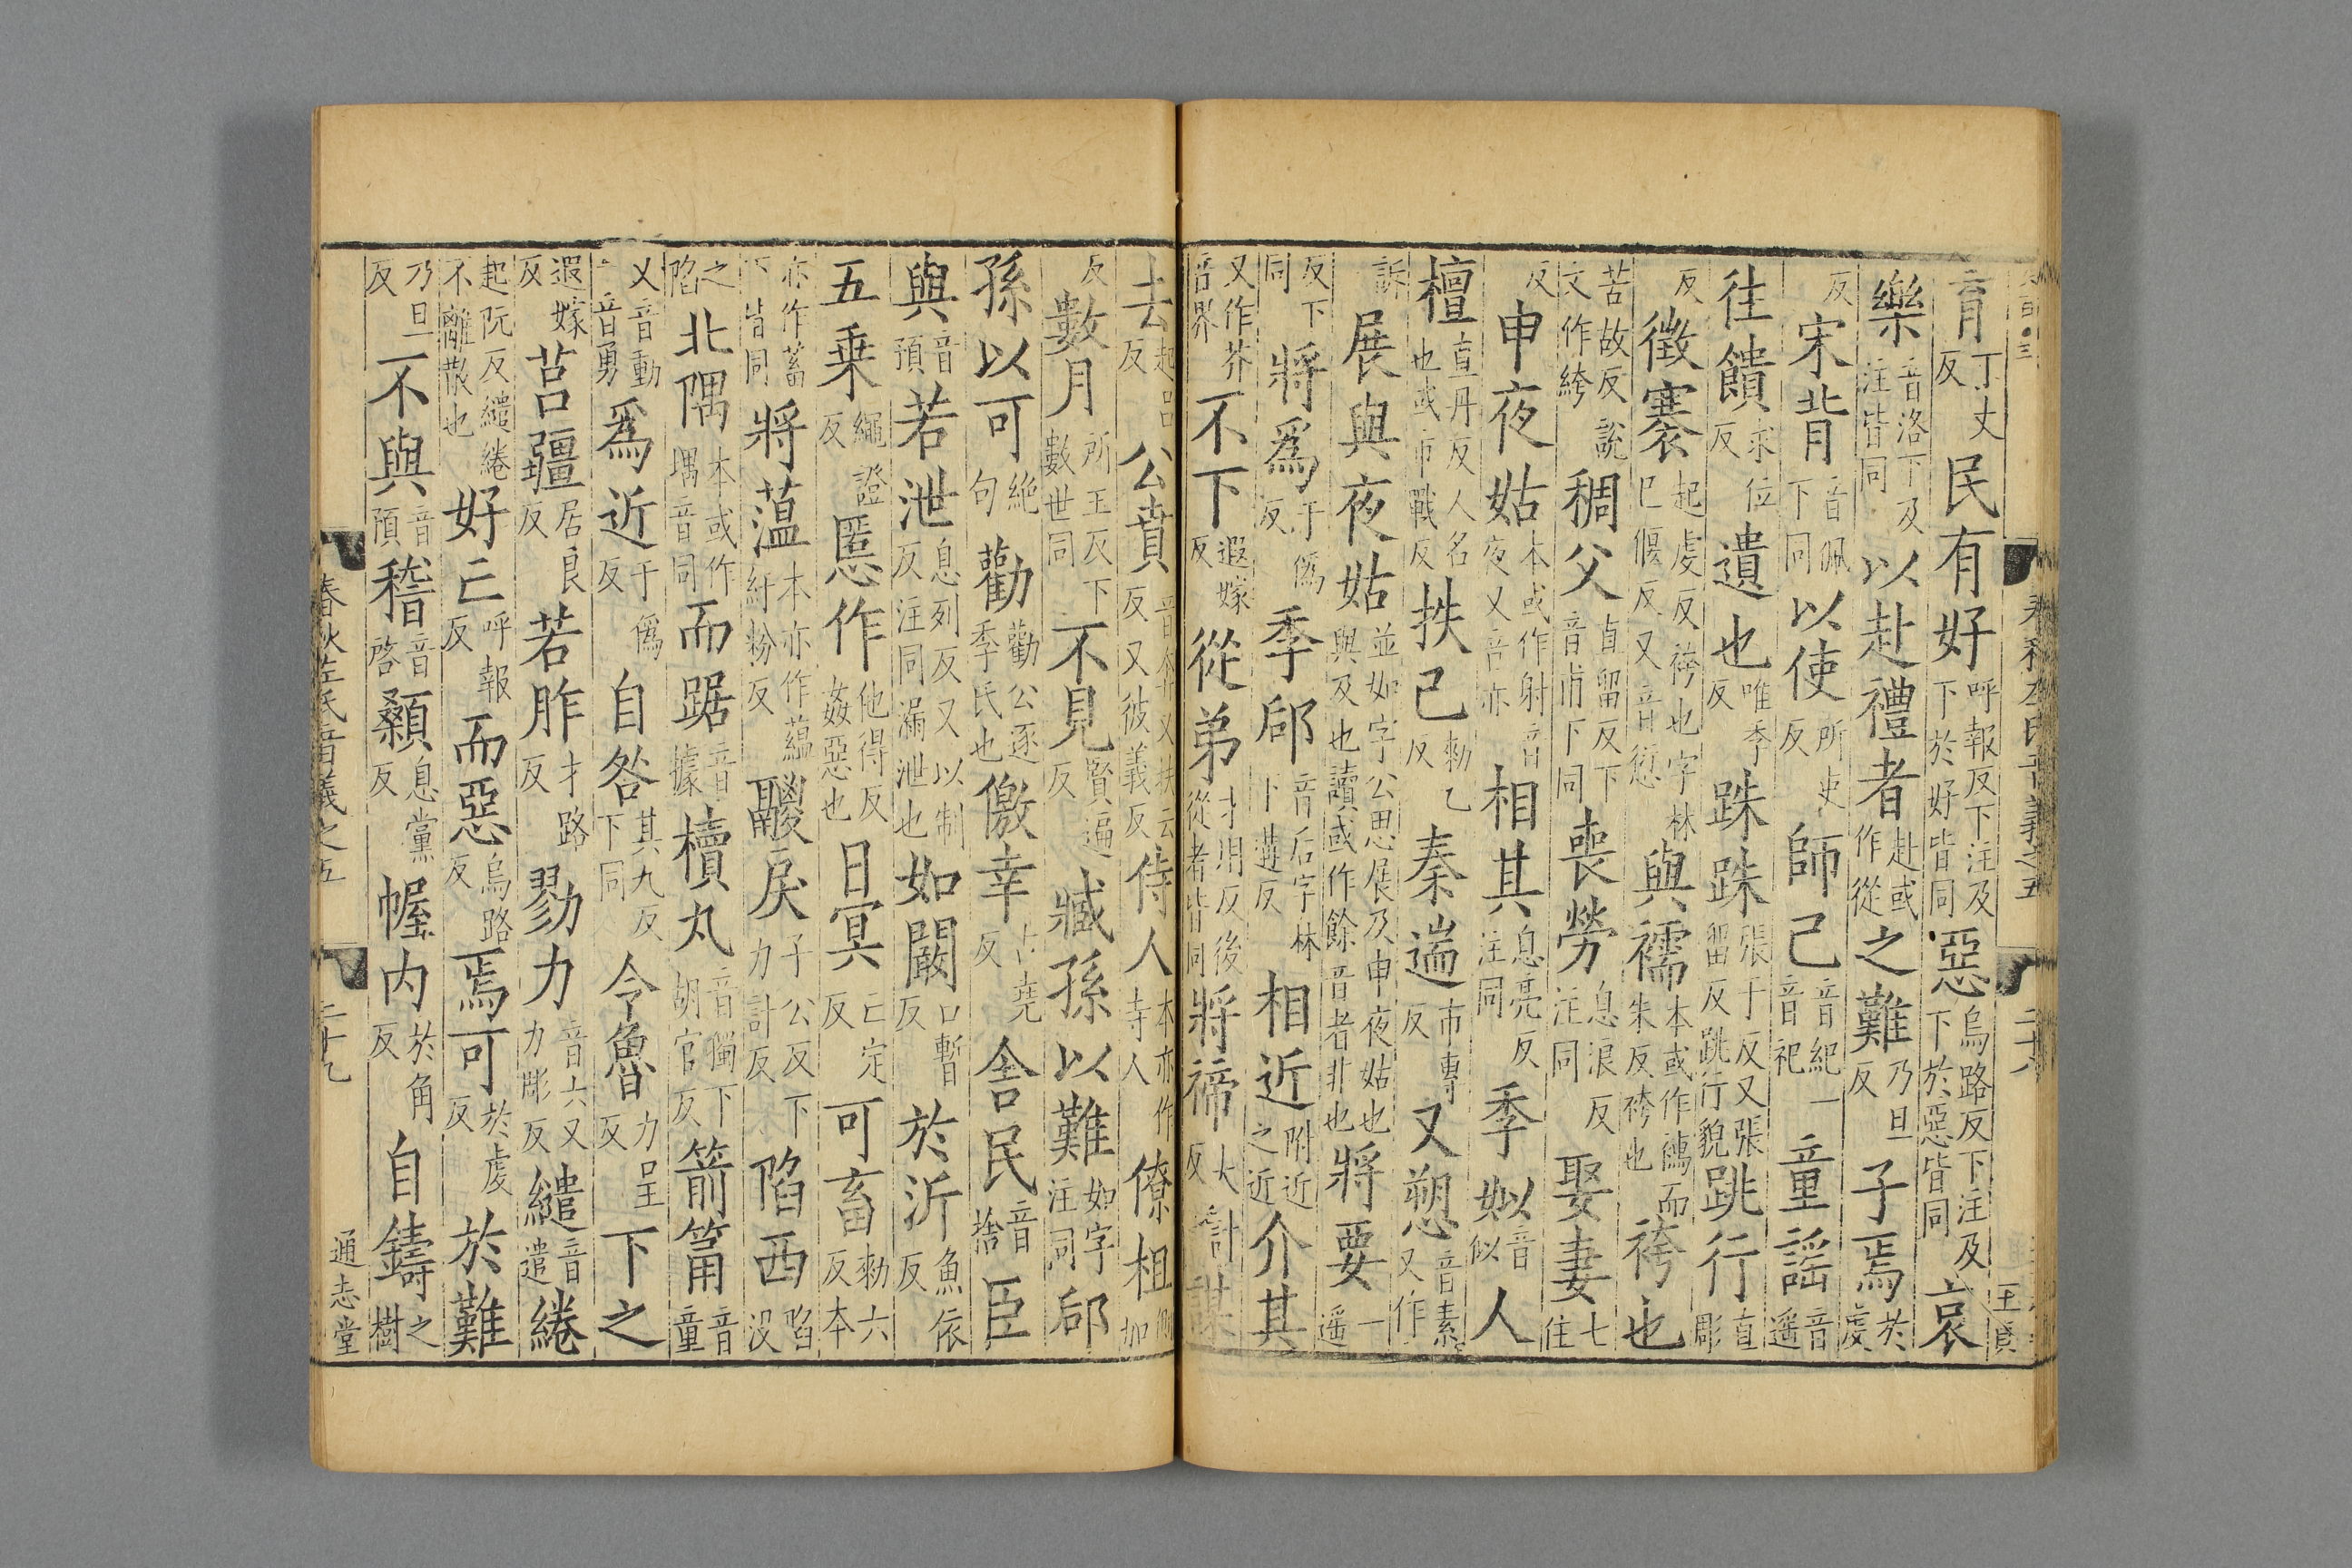 春秋左氏音義之五 二十八 王貞
育丁丈反民有好呼報反下注及下於好皆同惡烏路反下注及下於惡皆同哀
樂音洛下及注皆同以赴禮者赴或作從之難乃旦反子焉於虔
反宋背音佩下同以使所吏反師己音紀一音祀童謡音遥
往饋求位反遺也唯季反跦跦張于反又張留反跳行貌跳行直彫
反徵褰起虔反袴也字林已偃反又音愆與襦本或作𧝄而朱反袴也袴也
苦故反說文作絝稠父直留反下音甫下同喪勞息浪反注同娶妻七住
反申夜姑本或作射音夜又音亦相其息亮反注同季姒音似人
檀直丹反人名也或市戰反抶己勑乙反秦遄市專反又愬音素又作
訴展與夜姑並如字公思展及申夜姑也與及也讀或作餘音者非也將要一遥
反下同將爲于僞反季郈音后字林下遘反相近附近之近介其
又作芥音界不下遐嫁反從弟才用反後從者皆同將禘大計反謀
去起呂反公賁音奔又扶云反又彼義反侍人本亦作寺人僚柤側加
反數月所主反下數世同不見賢遍反臧孫以難如字注同郈
孫以可絶句勸勸公逐季氏也儌幸古堯反舍民音捨臣
與音預若泄息列反又以制反注同漏泄也如闞口暫反於沂魚依反
五乗繩證反慝作他得反姦惡也日冥亡定反可畜勑六反本
亦作蓄下皆同將薀本亦作蘊紆粉反鬷戾子公反下力計反陷西陷没
之陷北隅本或作堣音同而踞音據櫝丸音獨下胡官反箭筩音童
又音動一音勇爲近于僞反自咎其九反下同令魯力呈反下之
遐嫁反莒疆居良反若胙才路反勠力音六又力彫反繾音遣綣
起阮反繾綣不離散也好亡呼報反而惡烏路反焉可於虔反於難
乃旦反不與音預稽音啓顙息黨反幄内於角反自鑄之樹
春秋左氏音義之五 二十九 通志堂